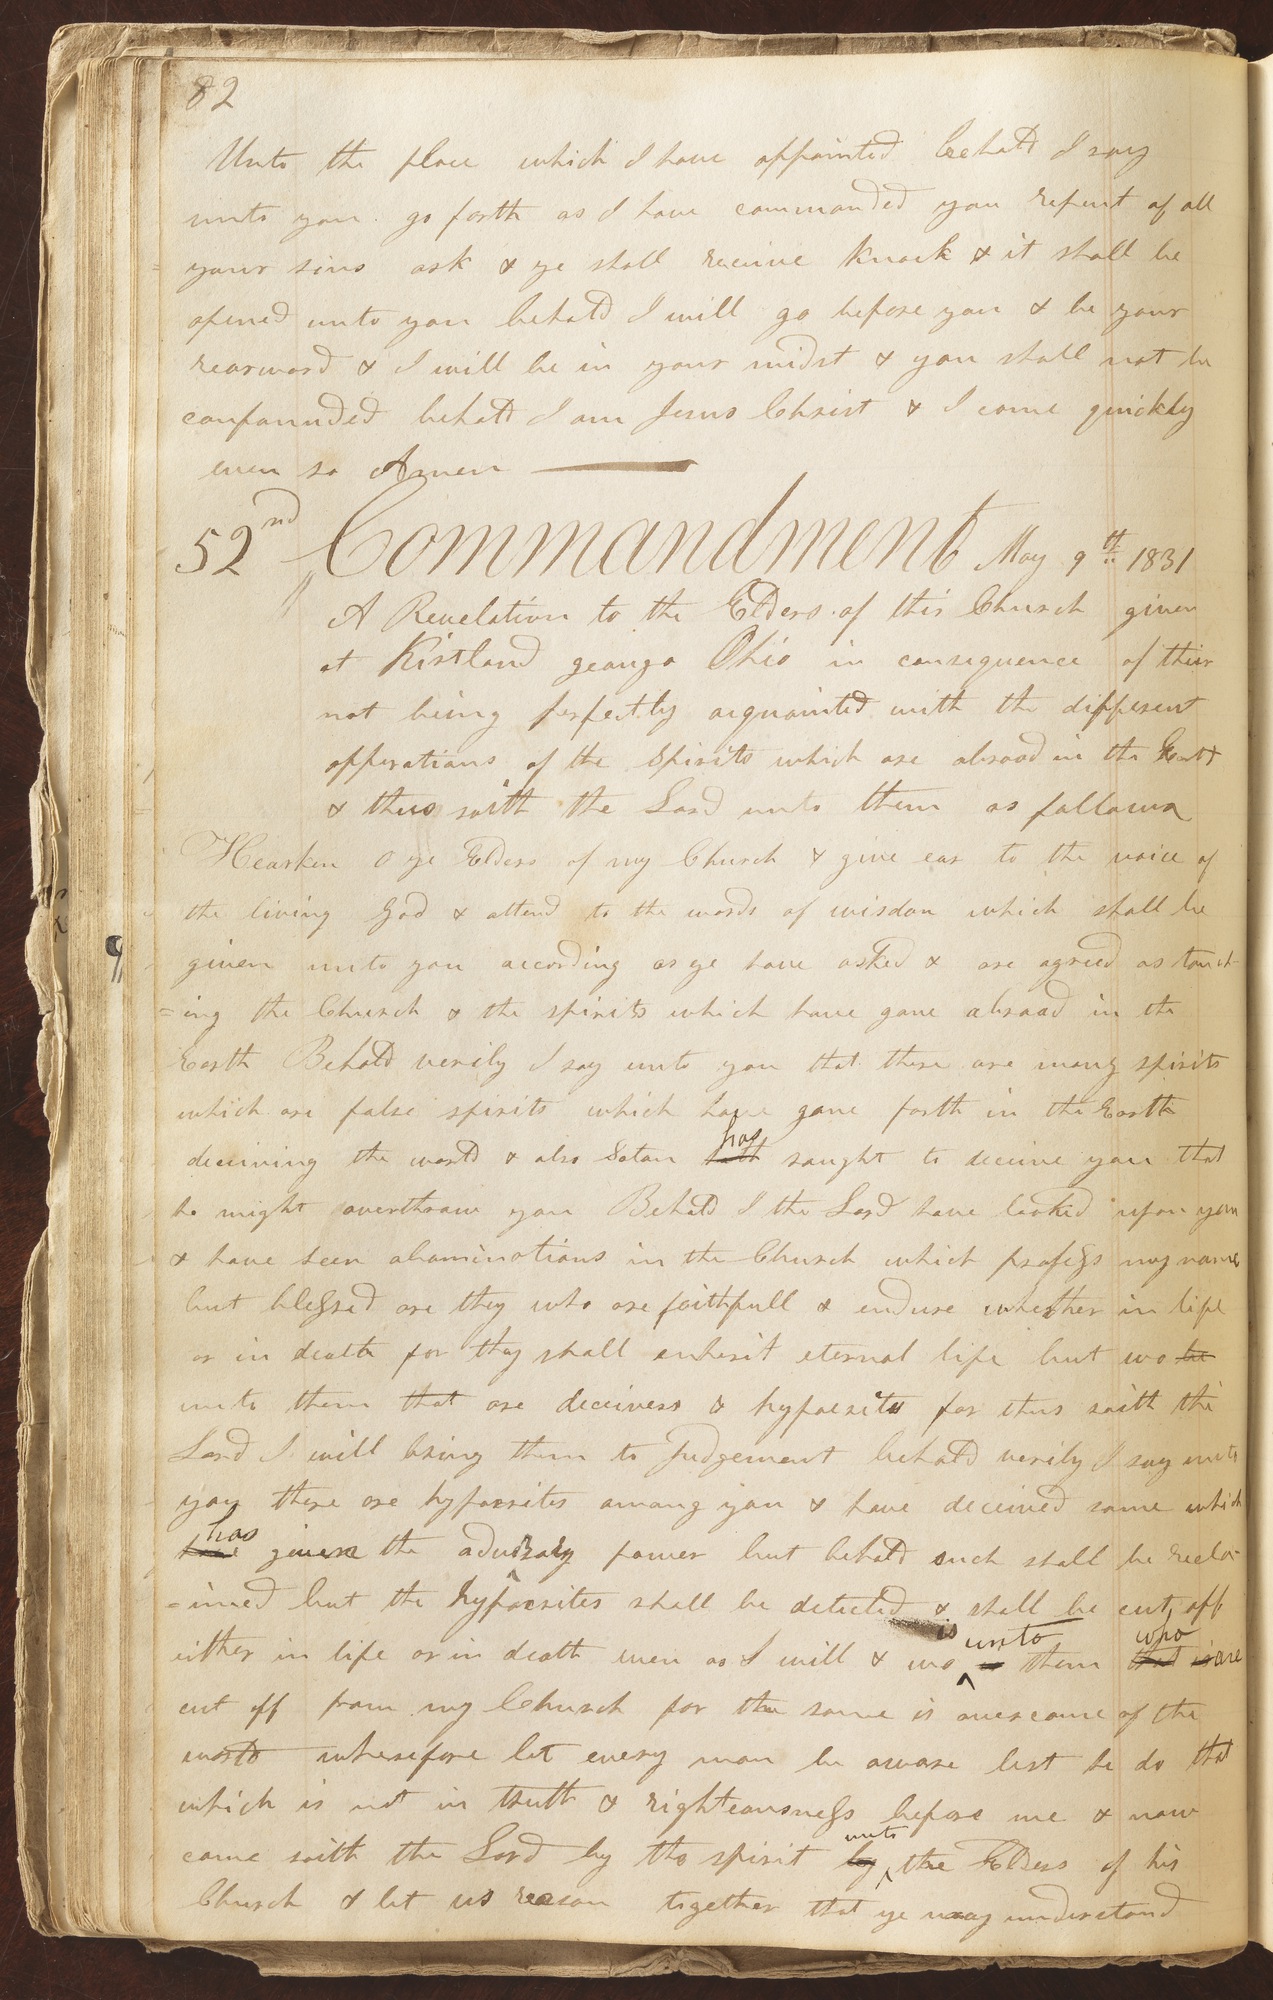 82
Unto the place which I have appointed behold I say
unto you go forth as I have commanded you repent of all
your sins ask & ye shall receive knock & it shall be
opened unto you behold I will go before you & be your
rearward & I will be in your midst & you shall not be
confounded behold I am Jesus Christ & I come quickly
even so Amen
52nd Commandment May 9th 1831
A Revelation to the Elders of this Church given
at Kirtland geauga Ohio in consequence of their
not being perfectly acquainted with the different
opperations of the Spirits which are abroad in the Earth
& thus saith the Lord unto them as follows
Hearken O ye Elders of my Church & give ear to the voice of
the living God & attend to the words of wisdom which shall be
given unto you according as ye have asked & are agreed as touch-
=ing the Church & the spirits which have gone abroad in the
Earth Behold verily I say unto you that there are many spirits
which are false spirits which have gone forth in the Earth
deceiving the world & also Satan hath has sought to deceive you that
he might overthrow you Behold I the Lord have looked upon you
& have seen abominations in the Church which profess my name
but blessed are they who are faithfull & endure whether in life
or in death for they shall enherit eternal life but wo be
unto them that are deceivers & hypocrites for thus saith the
Lord I will bring them to Judgement behold verily I say unto
you there are hypocrites among you & have deceived some which
have has given the adversary power but behold such shall be recla-
=imed but the hypocrites shall be detected & shall be cut off
either in life or in death even as I will & wo is unto them that who is are
cut off from my Church for the same is overcome of the
world wherefore let every man be aware lest he do that
which is not in truth & righteousness before me & now
come saith the Lord by the spirit by unto the Elders of his
Church & let us reason together that ye may understand